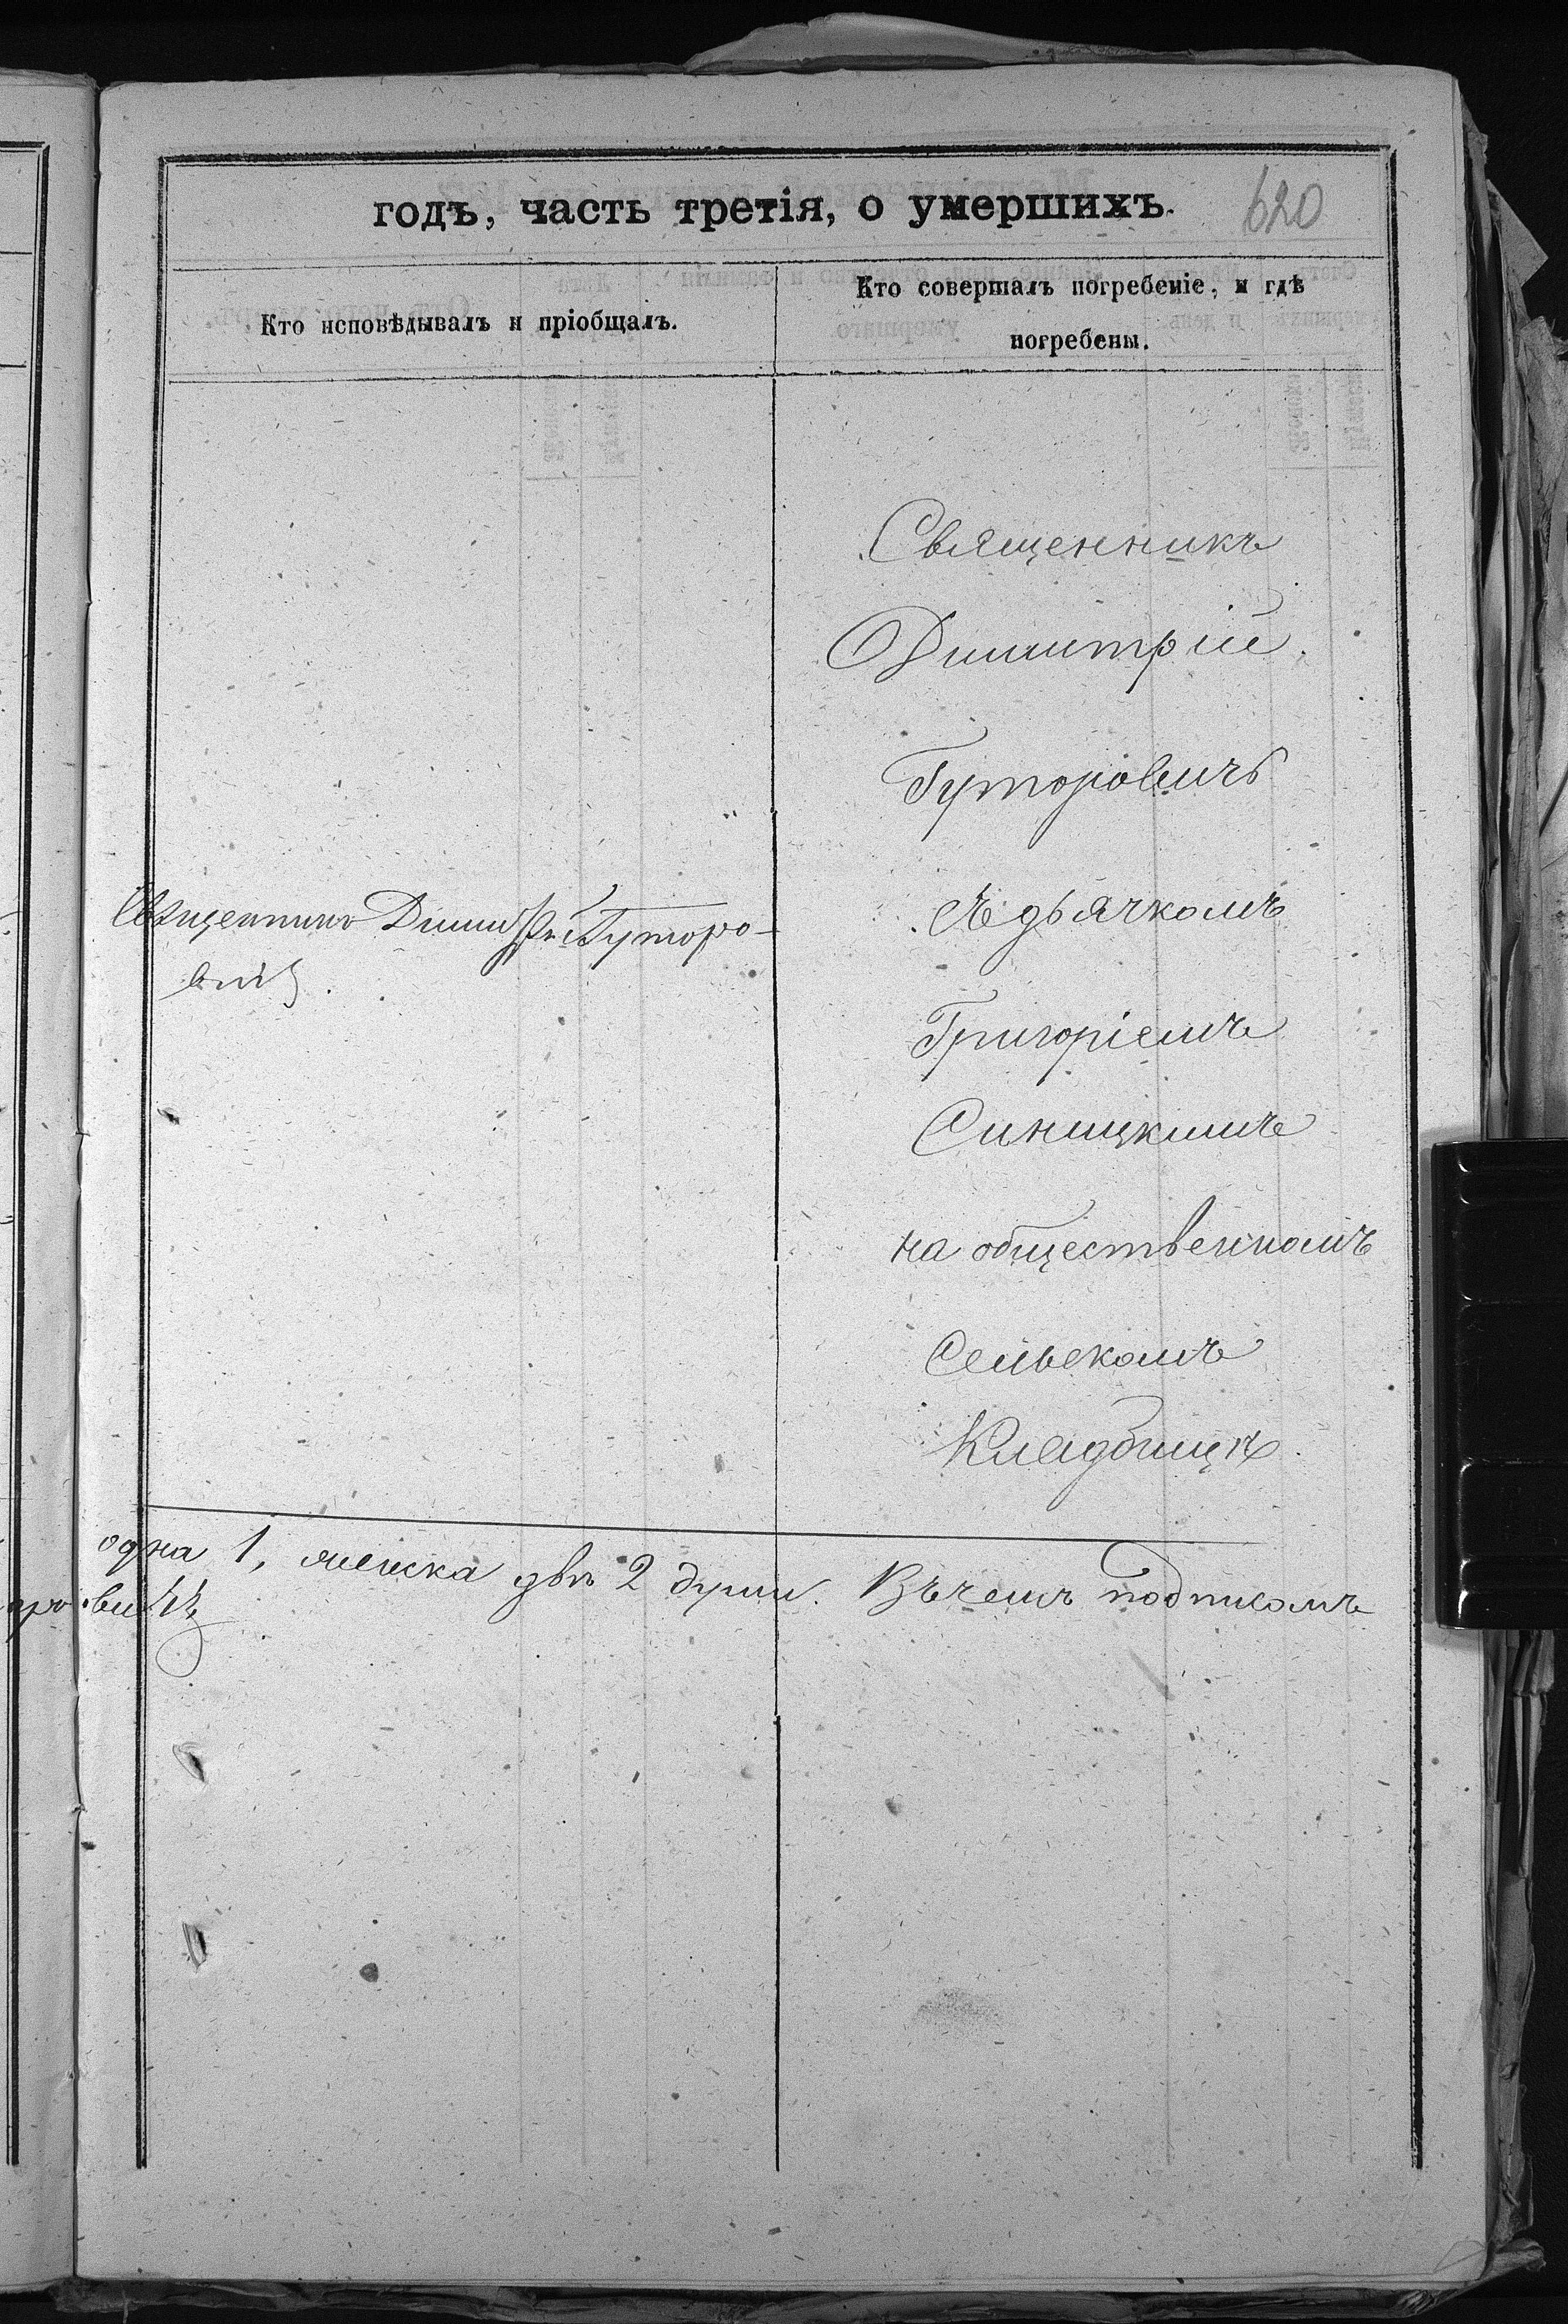 годъ, часть третія, о умершихъ.
620
Кто исповѣдывалъ и пріобщалъ.
Кто совершалъ погребеніе, и гдѣ
погребены.
Священникъ
Димитрій
Гуторовичъ
Съ дьячкомъ
Григоріемъ
Синицкимъ
на общественномъ
Сельскомъ
Кладбищѣ.
Священникъ Димитрій Гуторо-
вичъ.
одна 1, женска двѣ 2 души. Въ чемъ подписомъ
ровичъ